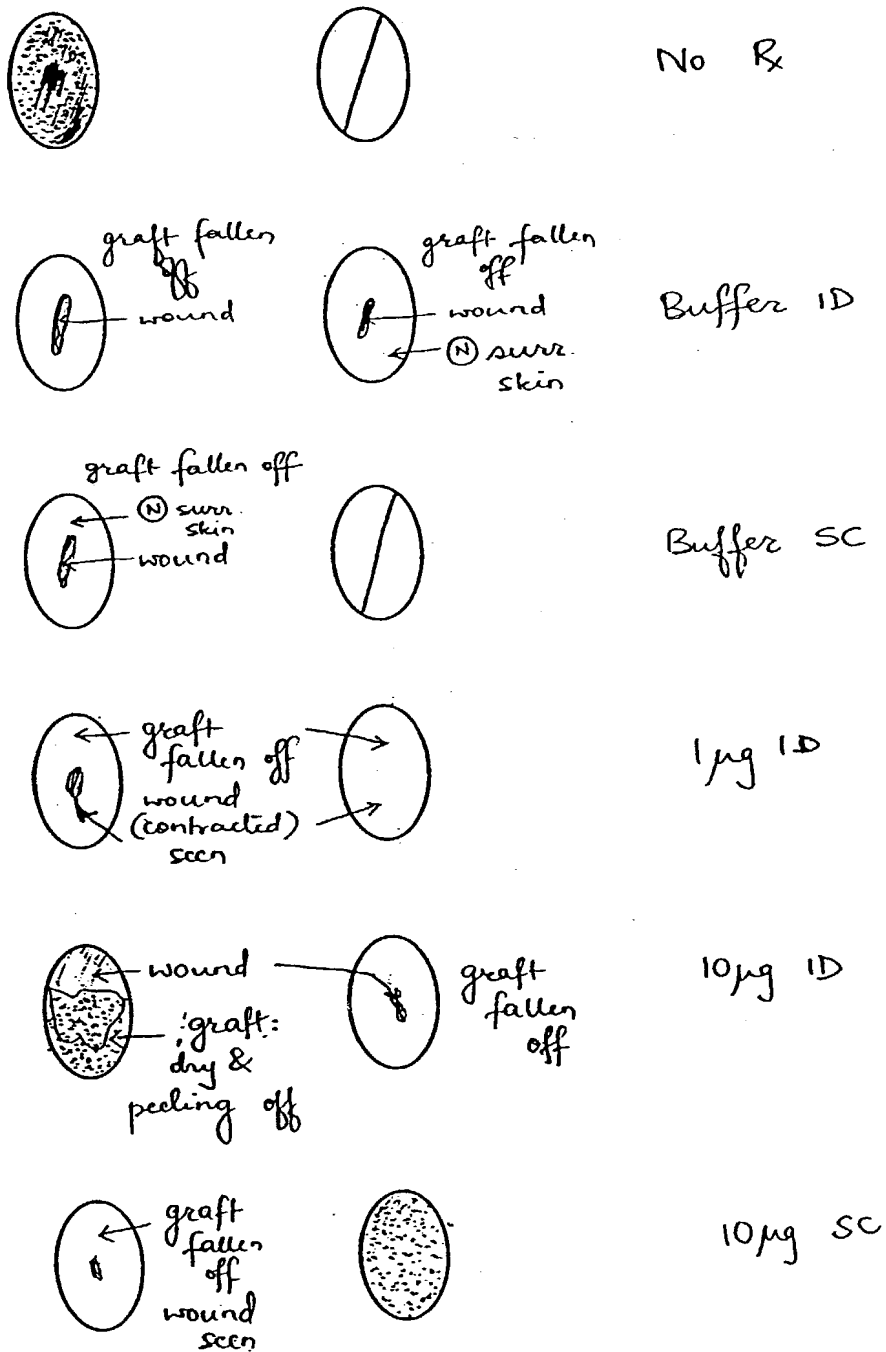 No Rx
graft fallen
off
wound
graft fallen
off
wound
(N) surr.
skin
Buffer ID
graft fallen off
(N) surr.
skin
wound
Buffer SC
graft
fallen off
wound
(contracted)
seen
1 µg ID
wound
graft:
dry &
peeling off
graft
fallen
off
10 µg ID
graft
fallen
off
wound
seen
10 µg SC